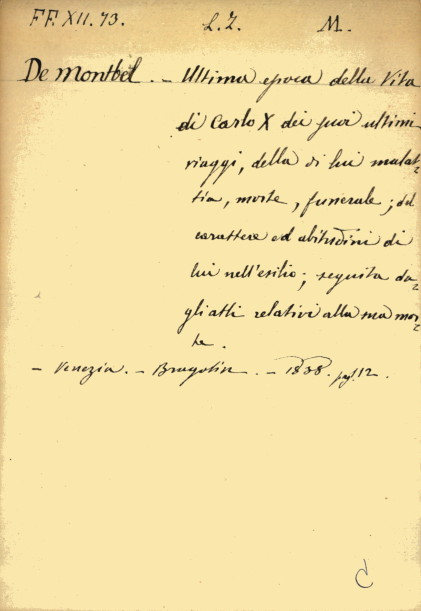 FF. XII. 73. L. Z. M.
De Montbèl. — Ultima epoca della Vita
di Carlo X dei suoi ultimi
viaggi, della di lui malat-
tia, morte, funerale; del
carattere ed abitudini di
lui nell'esilio; seguita da-
gli atti relativi alla sua mor-
te.
— Venezia. — Bragolin. — 1838. pag. 12.